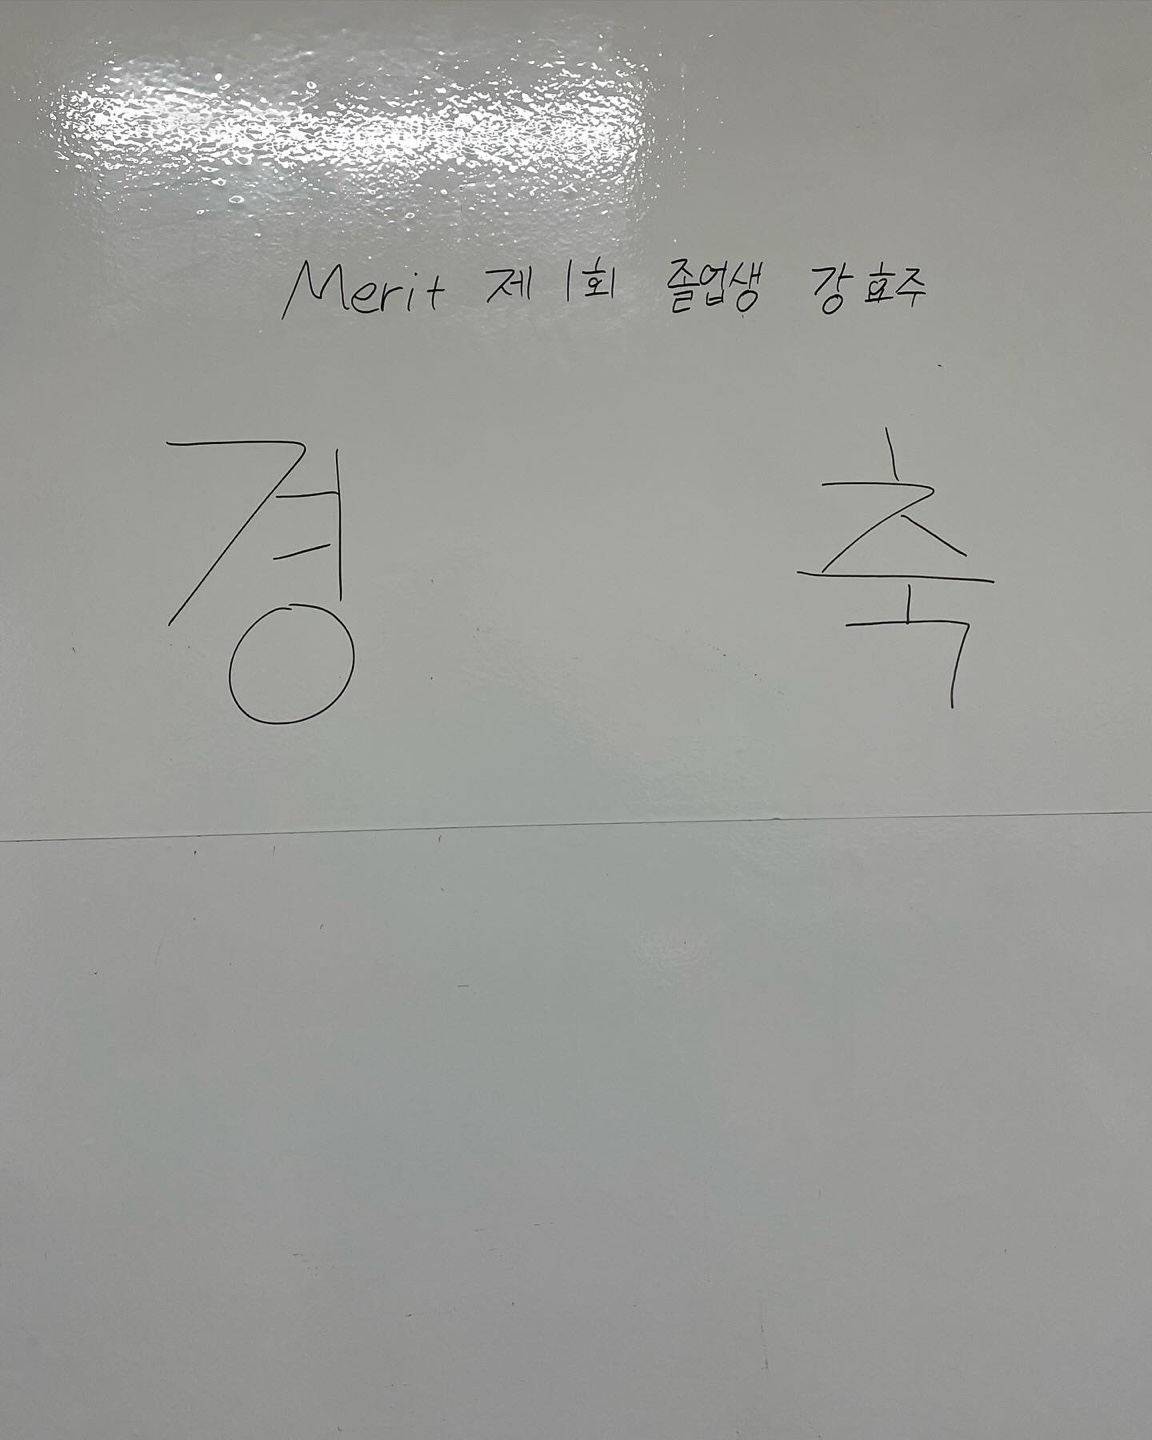 Merit 제 1회 졸업생 강효주
경 축